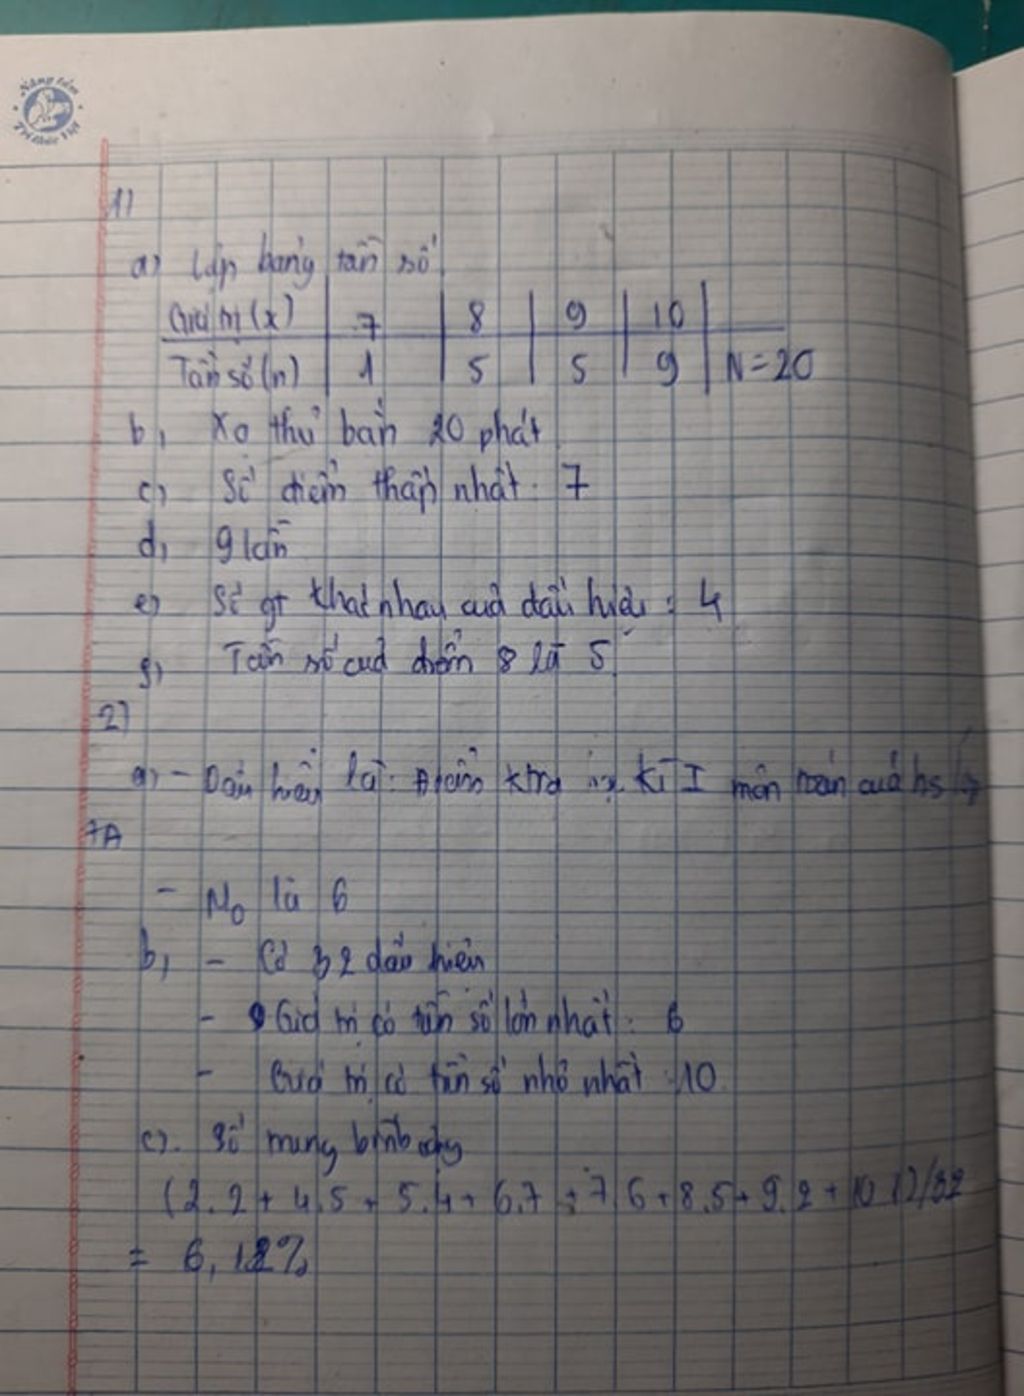 Nâng tầm
Tri thức Việt
1)
a) Lập bảng tần số
Giá trị (x) 7 8 9 10
Tần số (n) 1 5 5 9 N = 20
b, Xạ thủ bắn 20 phát
c) Số điểm thấp nhất: 7
d, 9 lần
e) Số gt khác nhau của dấu hiệu : 4
g, Tần số của điểm 8 là 5
2)
a) - Dấu hiệu là: Điểm ktra kì I môn toán của hs
7A
- M0 là 6
b, - Có 32 dấu hiệu
- Giá trị có tần số lớn nhất: 6
- Giá trị có tần số nhỏ nhất: 10
c). Số trung bình cộng
(2.2 + 4.5 + 5.4 + 6.7 + 7.6 + 8.5 + 9.2 + 10.1)/32
= 6,12%